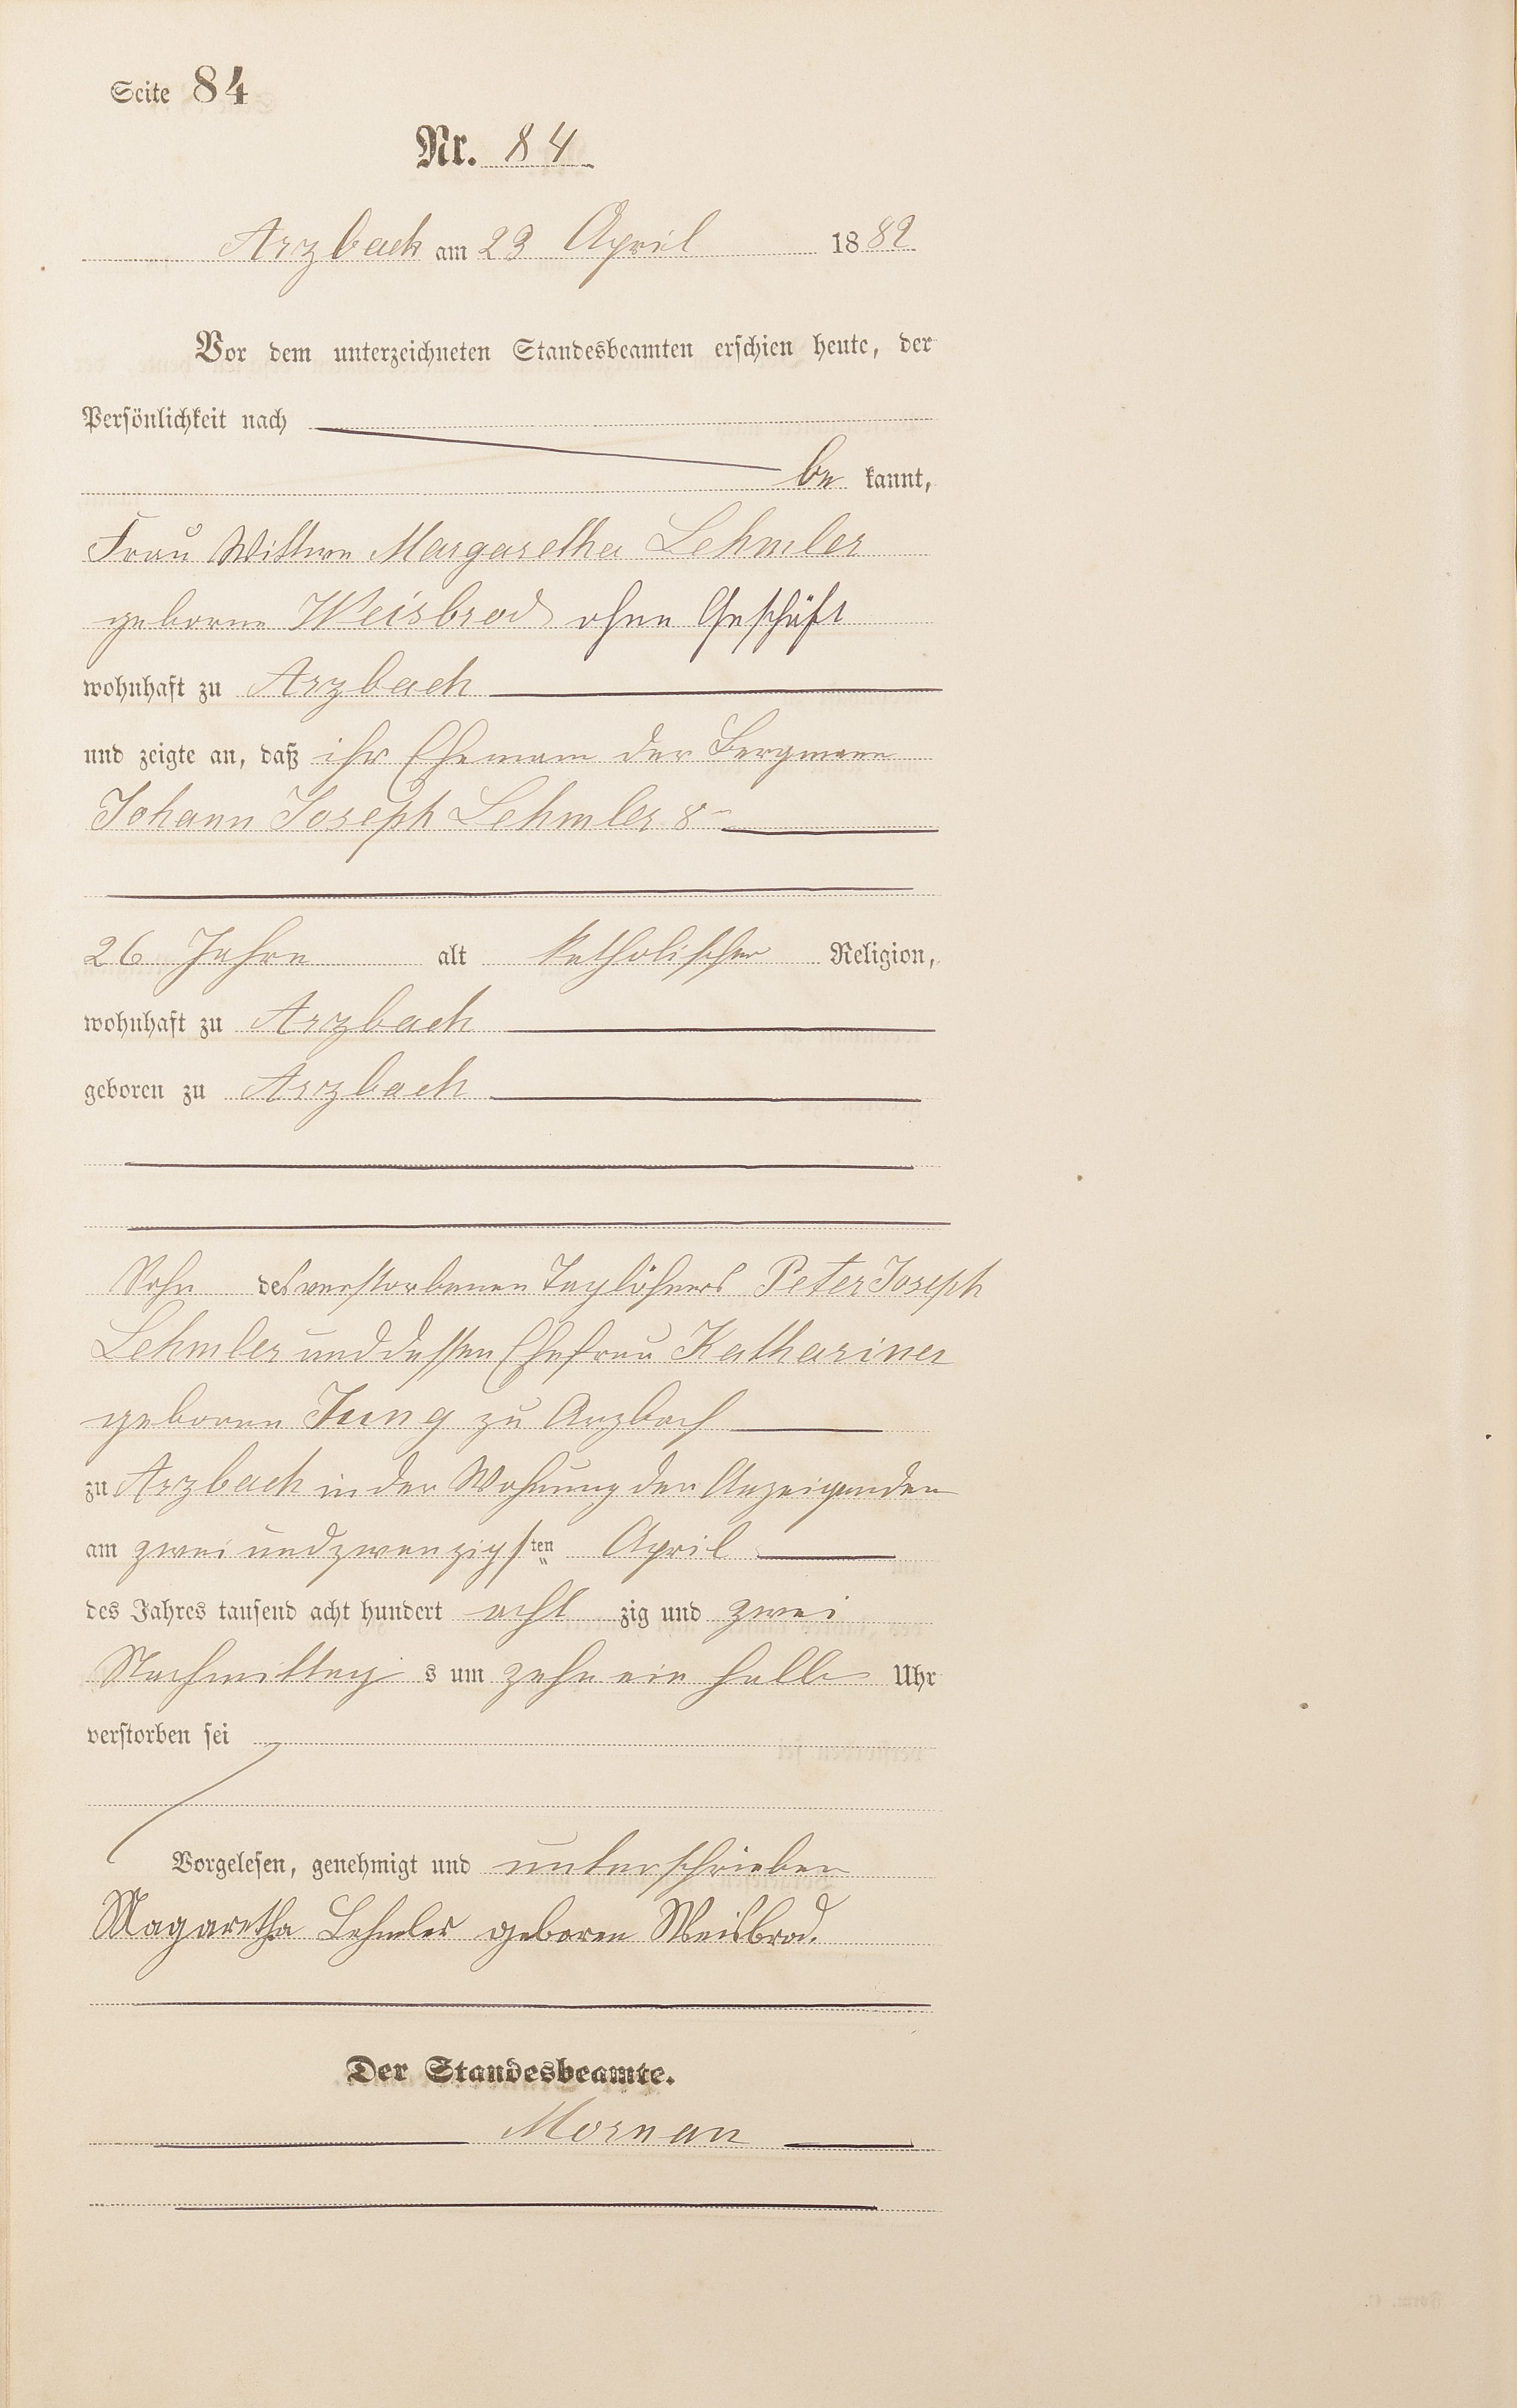 Seite 84
Nr. 84
Arzbach am 23 April 1882
Vor dem unterzeichneten Standesbeamten erschien heute, der
Persönlichkeit nach
be kannt,
Frau Wittwe Margaretha Lehmler
geborne Weisbrod ohne Geschäft
wohnhaft zu Arzbach
und zeigte an, daß ihr Ehemann der Bergmann
Johann Joseph Lehmler
26 Jahre alt katholischer Religion,
wohnhaft zu Arzbach
geboren zu Arzbach
Sohn des verstorbenen Taglöhners Peter Joseph
Lehmler und dessen Ehefrau Katharina
geborne Jung zu Arzbach
zu Arzbach in der Wohnung der Anzeigenden
am zwei und zwanzigsten April
des Jahres tausend acht hundert acht zig und zwei
Nachmittag s um zehn ein halb Uhr
verstorben sei
Vorgelesen, genehmigt und unterschrieben
Magaretha Lehmler geboren Weisbrod.
Der Standesbeamte.